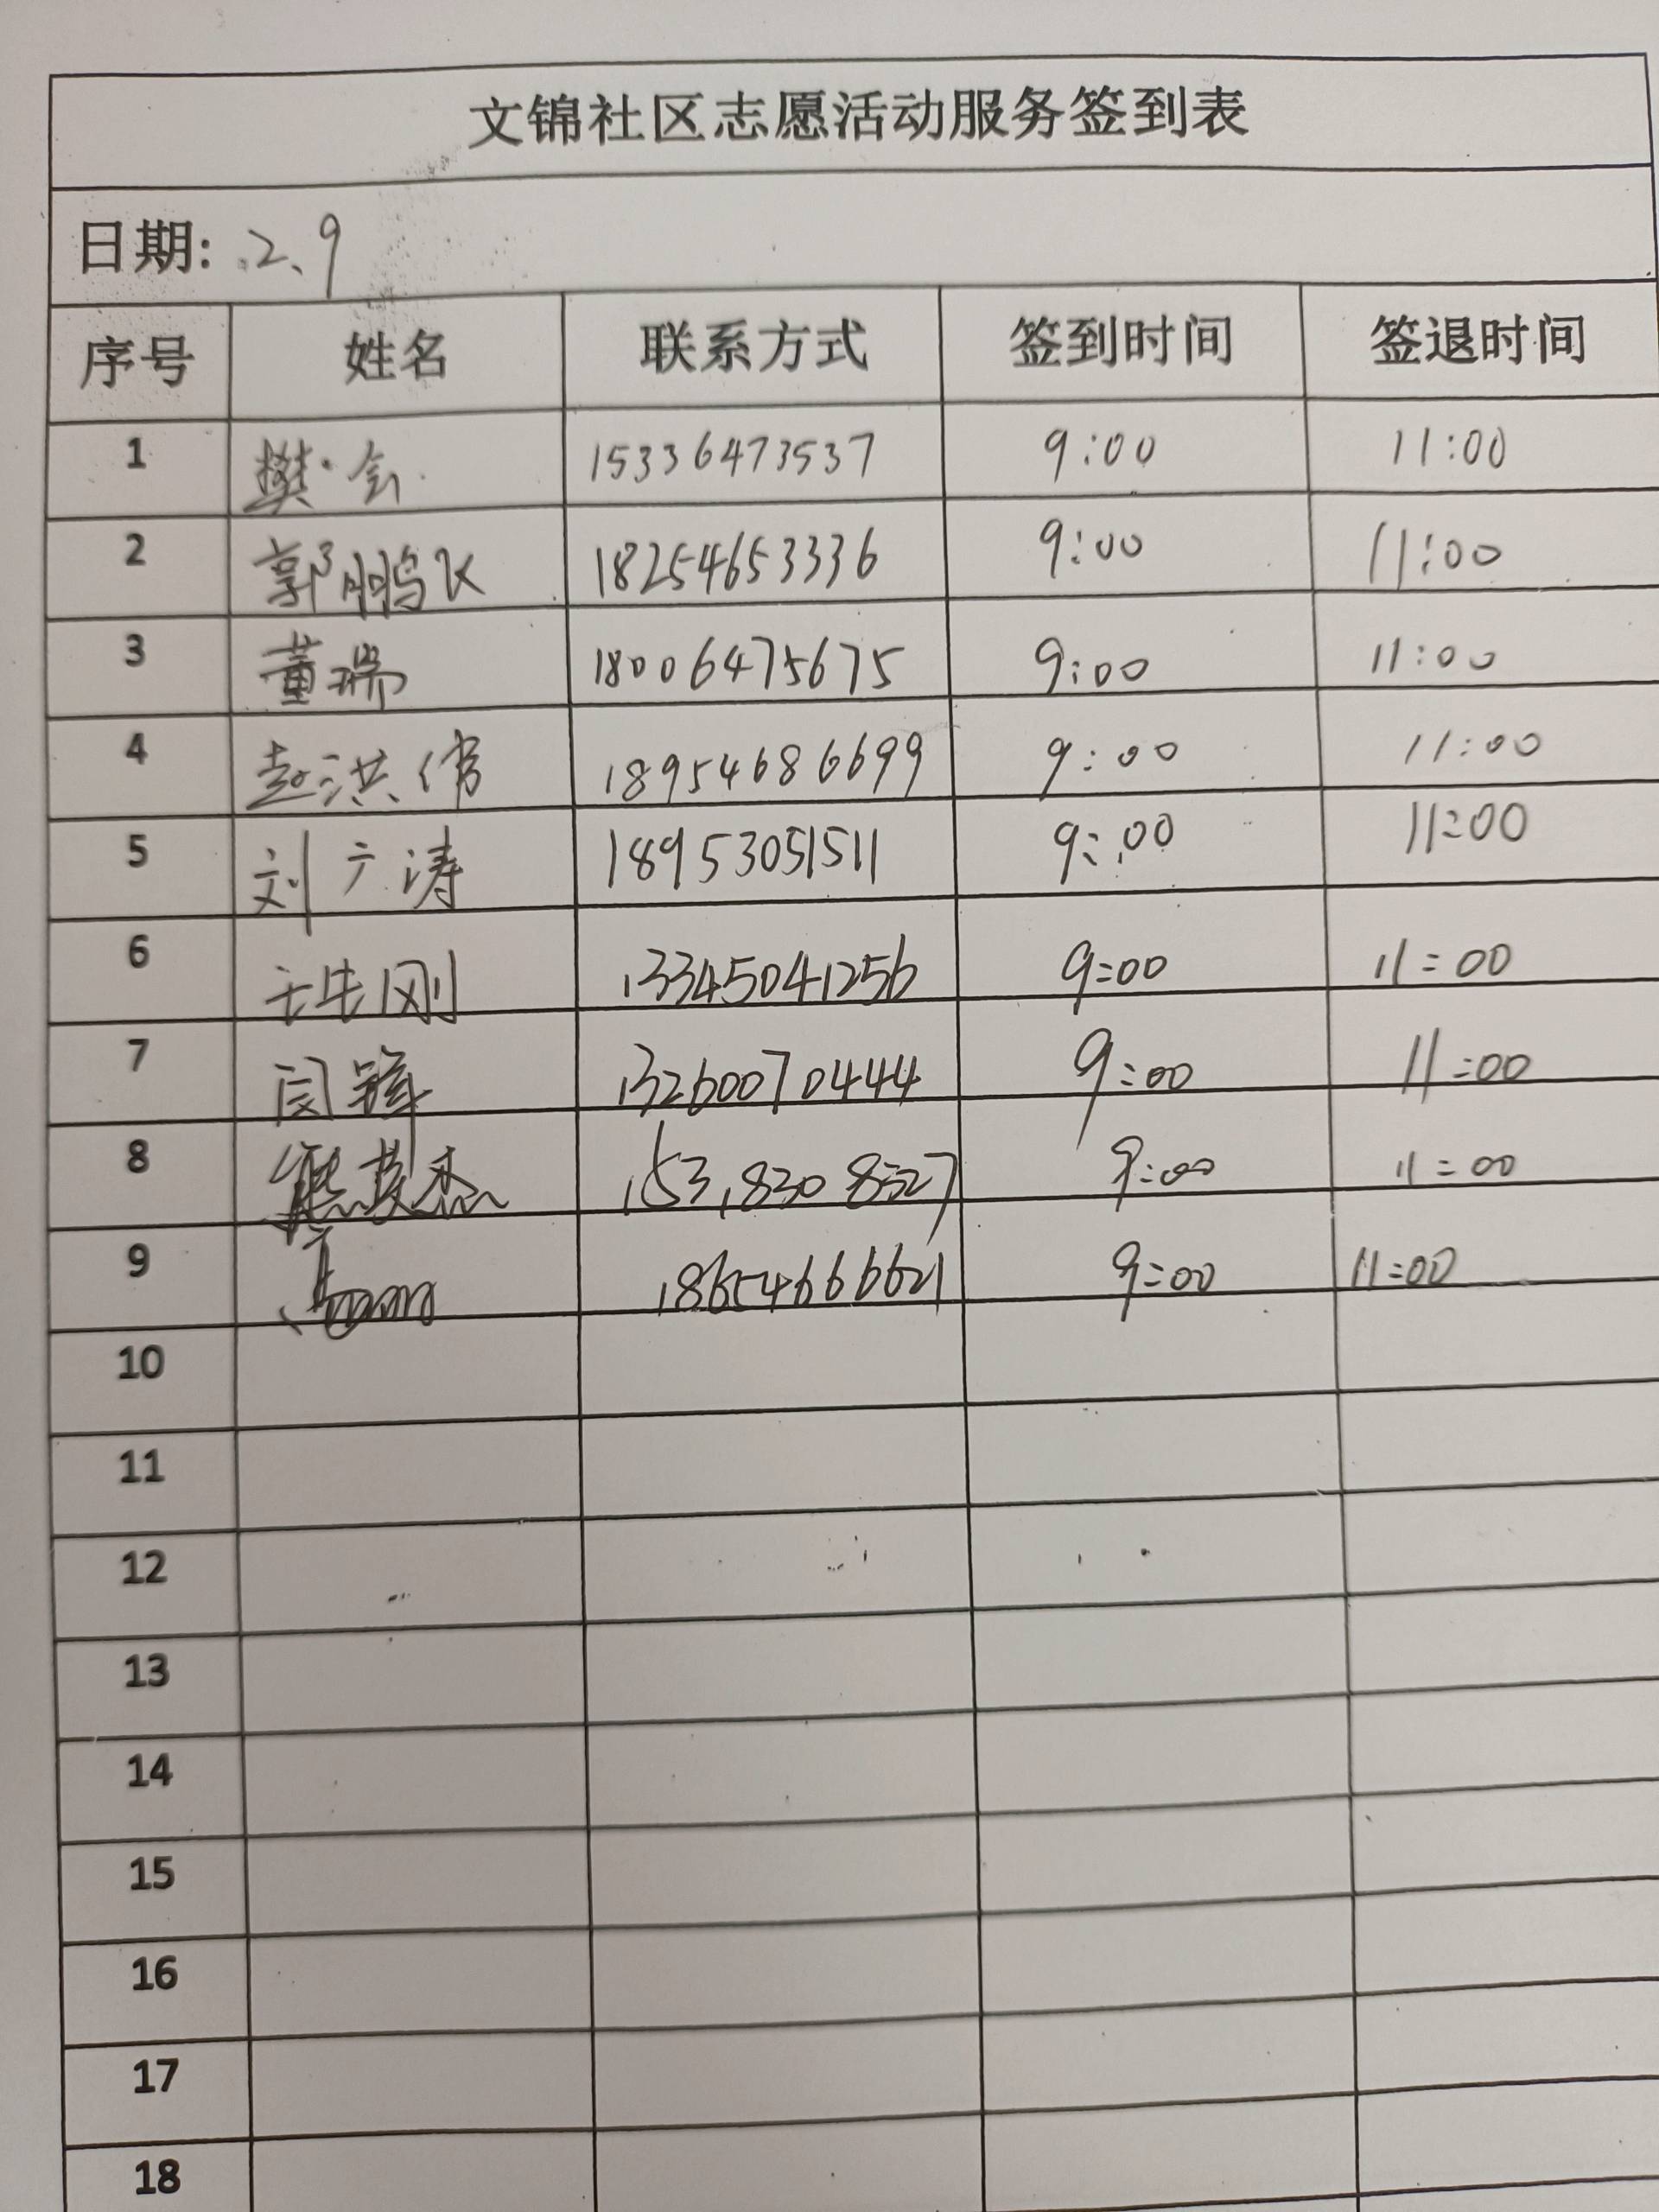 文锦社区志愿活动服务签到表
日期: 2、9
序号 姓名 联系方式 签到时间 签退时间
1 樊会 15336473537 9:00 11:00
2 郭鹏飞 18254653336 9:00 11:00
3 董瑞 18006475675 9:00 11:00
4 赵洪伟 18954686699 9:00 11:00
5 刘广涛 18953051511 9:00 11:00
6 刚 13345041256 9:00 11:00
7 闫锋 13260070444 9:00 11:00
8 熊英杰 15318308527 9:00 11:00
9 18654666621 9:00 11:00
10
11
12
13
14
15
16
17
18